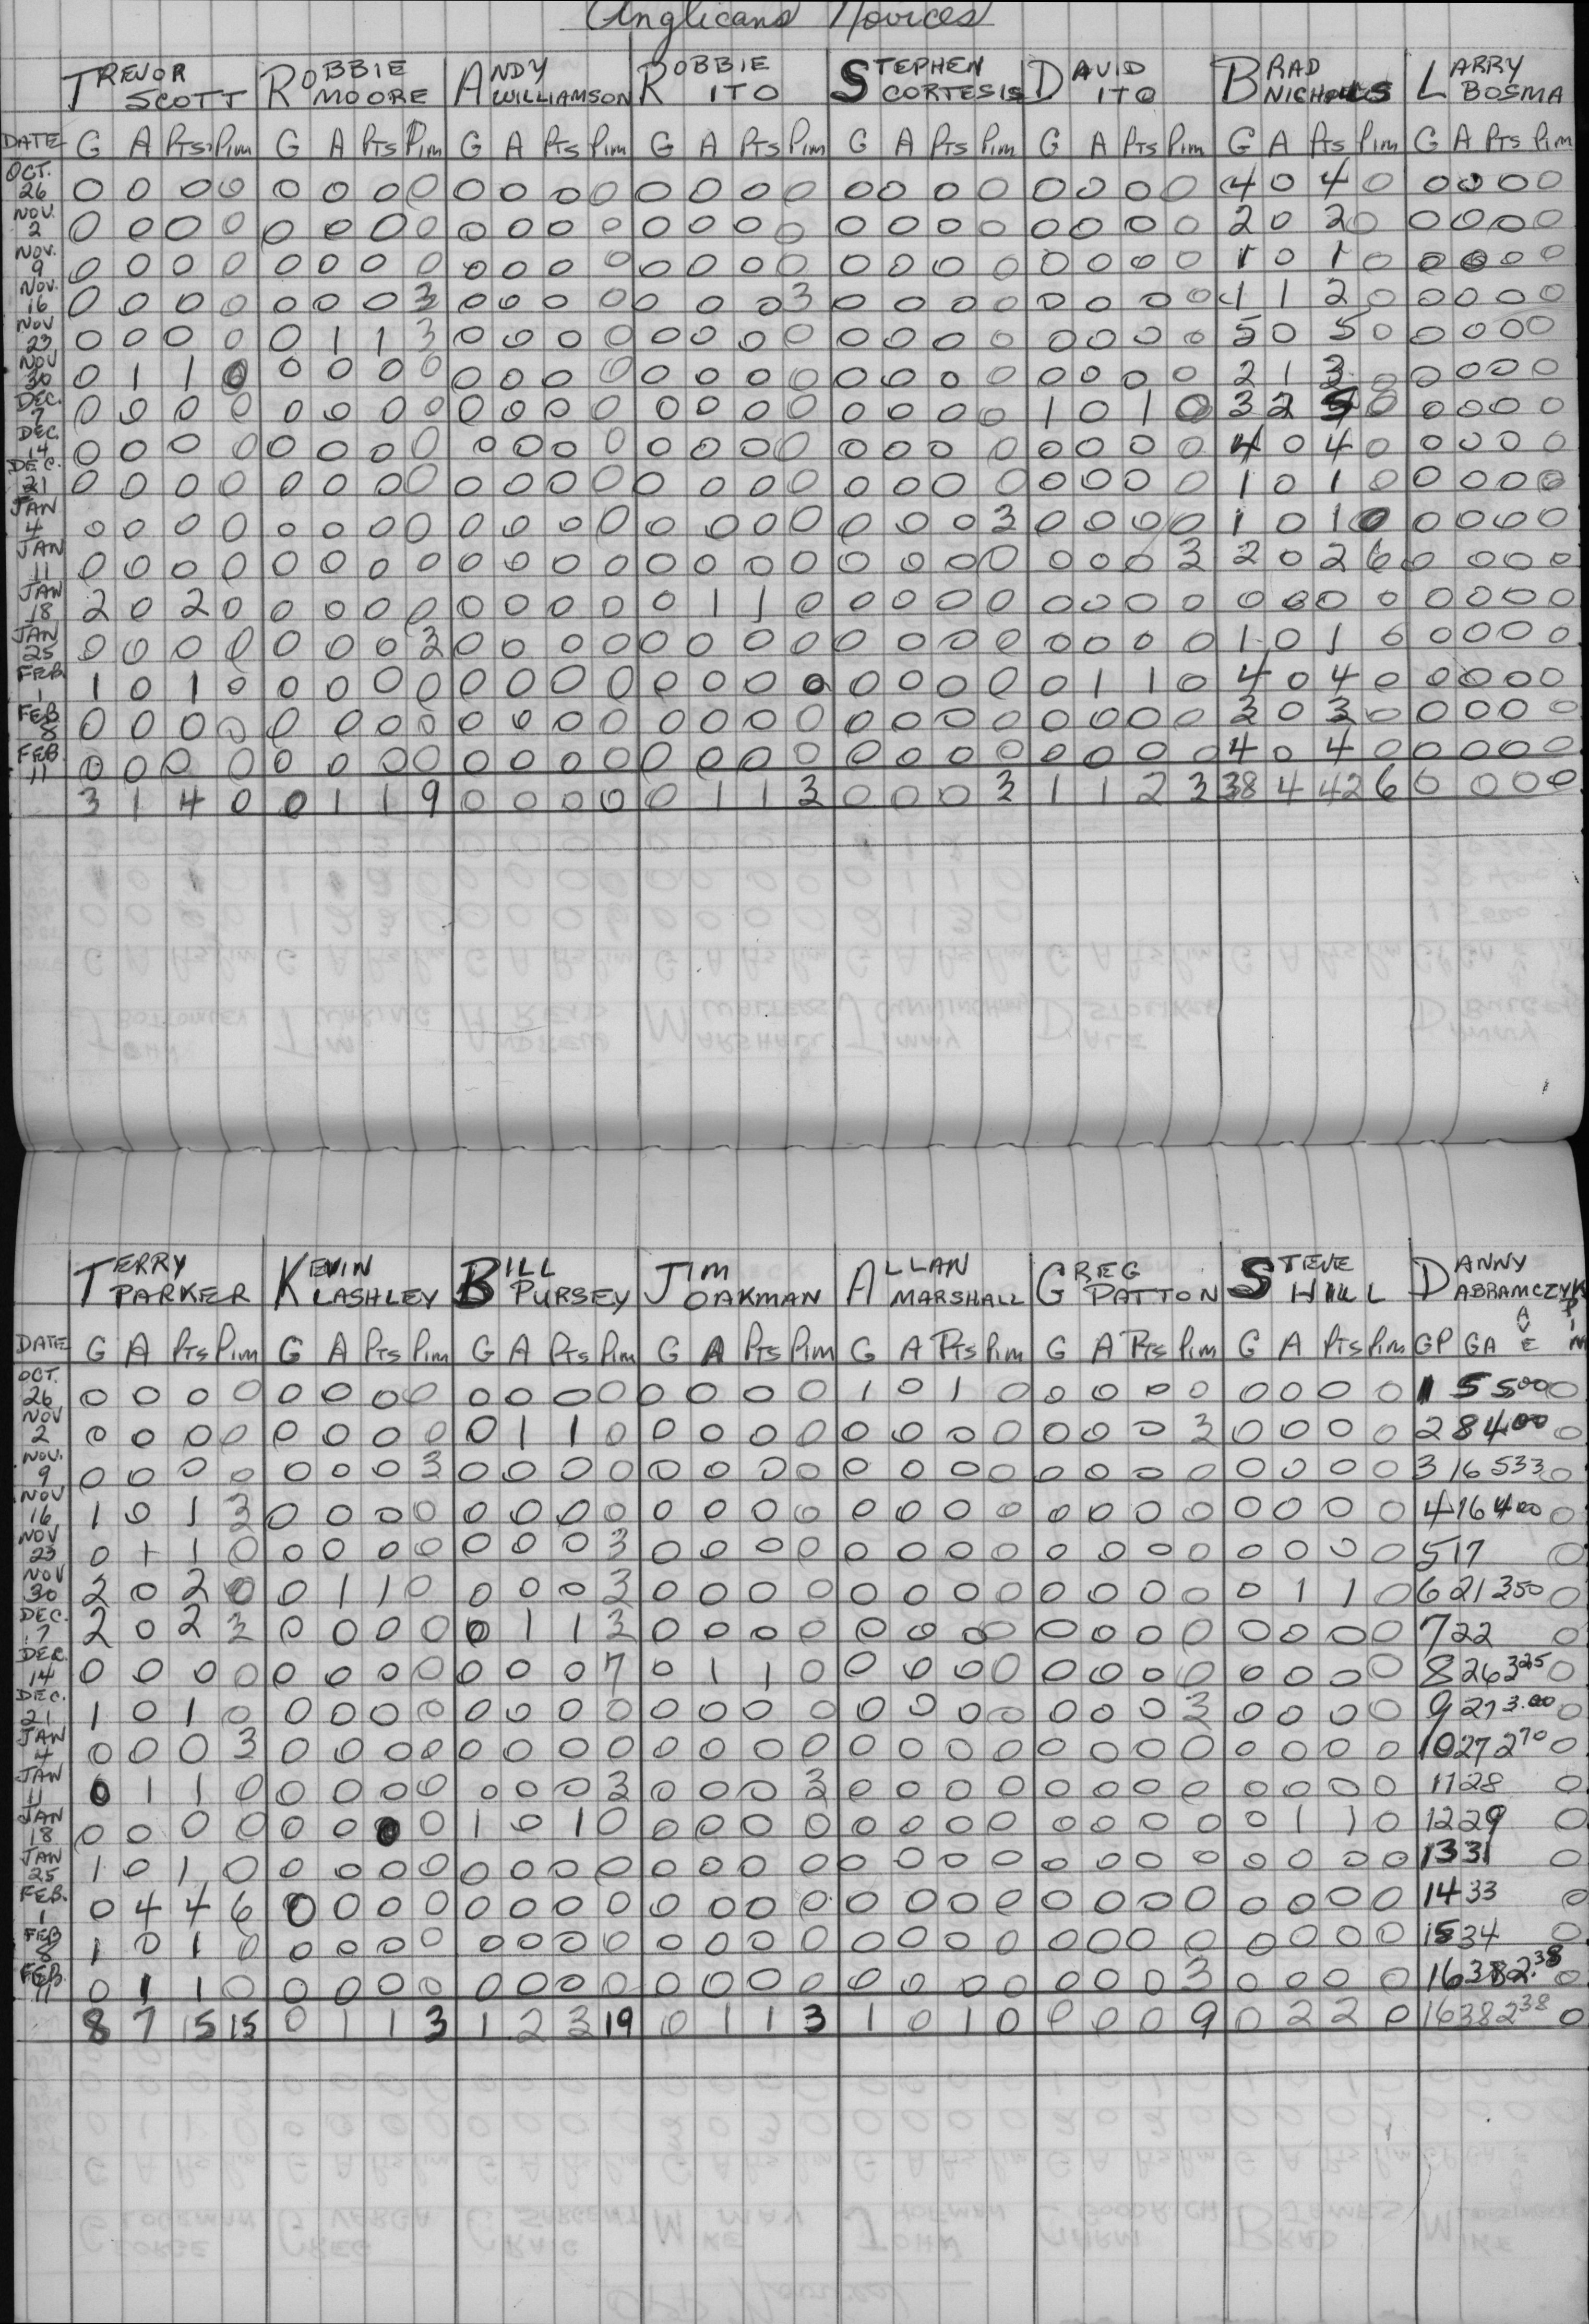 Anglicans Novices
TREVOR SCOTT ROBBIE MOORE ANDY WILLIAMSON ROBBIE ITO STEPHEN CORTESIS DAVID ITO BRAD NICHOLLS LARRY BOSMA
DATE G A Pts Pim G A Pts Pim G A Pts Pim G A Pts Pim G A Pts Pim G A Pts Pim G A Pts Pim G A Pts Pim
OCT. 26 0 0 0 0 0 0 0 0 0 0 0 0 0 0 0 0 0 0 0 0 0 0 0 0 4 0 4 0 0 0 0 0
NOV. 2 0 0 0 0 0 0 0 0 0 0 0 0 0 0 0 0 0 0 0 0 0 0 0 0 2 0 2 0 0 0 0 0
NOV. 9 0 0 0 0 0 0 0 0 0 0 0 0 0 0 0 0 0 0 0 0 0 0 0 0 1 0 1 0 0 0 0 0
NOV. 16 0 0 0 0 0 0 0 3 0 0 0 0 0 0 0 3 0 0 0 0 0 0 0 0 1 1 2 0 0 0 0 0
NOV 23 0 0 0 0 0 1 1 3 0 0 0 0 0 0 0 0 0 0 0 0 0 0 0 0 5 0 5 0 0 0 0 0
NOV 30 0 1 1 0 0 0 0 0 0 0 0 0 0 0 0 0 0 0 0 0 0 0 0 0 2 1 3 0 0 0 0 0
DEC. 7 0 0 0 0 0 0 0 0 0 0 0 0 0 0 0 0 0 0 0 0 1 0 1 0 3 2 5 0 0 0 0 0
DEC. 14 0 0 0 0 0 0 0 0 0 0 0 0 0 0 0 0 0 0 0 0 0 0 0 0 4 0 4 0 0 0 0 0
DEC. 21 0 0 0 0 0 0 0 0 0 0 0 0 0 0 0 0 0 0 0 0 0 0 0 0 1 0 1 0 0 0 0 0
JAN 4 0 0 0 0 0 0 0 0 0 0 0 0 0 0 0 0 0 0 0 3 0 0 0 0 1 0 1 0 0 0 0 0
JAN 11 0 0 0 0 0 0 0 0 0 0 0 0 0 0 0 0 0 0 0 0 0 0 0 3 2 0 2 6 0 0 0 0
JAN 18 2 0 2 0 0 0 0 0 0 0 0 0 0 1 1 0 0 0 0 0 0 0 0 0 0 0 0 0 0 0 0 0
JAN 25 0 0 0 0 0 0 0 3 0 0 0 0 0 0 0 0 0 0 0 0 0 0 0 0 1 0 1 0 0 0 0 0
FEB. 1 1 0 1 0 0 0 0 0 0 0 0 0 0 0 0 0 0 0 0 0 0 1 1 0 4 0 4 0 0 0 0 0
FEB. 8 0 0 0 0 0 0 0 0 0 0 0 0 0 0 0 0 0 0 0 0 0 0 0 0 3 0 3 0 0 0 0 0
FEB. 11 0 0 0 0 0 0 0 0 0 0 0 0 0 0 0 0 0 0 0 0 0 0 0 0 4 0 4 0 0 0 0 0
3 1 4 0 0 1 1 9 0 0 0 0 0 1 1 3 0 0 0 3 1 1 2 3 38 4 42 6 0 0 0 0
TERRY PARKER KEVIN LASHLEY BILL PURSEY JIM OAKMAN ALLAN MARSHALL GREG PATTON STEVE HILL DANNY ABRAMCZYK
DATE G A Pts Pim G A Pts Pim G A Pts Pim G A Pts Pim G A Pts Pim G A Pts Pim G A Pts Pim GP GA AVE PIM
OCT. 26 0 0 0 0 0 0 0 0 0 0 0 0 0 0 0 0 1 0 1 0 0 0 0 0 0 0 0 0 1 5 5.00 0
NOV 2 0 0 0 0 0 0 0 0 0 1 1 0 0 0 0 0 0 0 0 0 0 0 0 3 0 0 0 0 2 8 4.00 0
NOV. 9 0 0 0 0 0 0 0 3 0 0 0 0 0 0 0 0 0 0 0 0 0 0 0 0 0 0 0 0 3 16 533 0
NOV 16 1 0 1 3 0 0 0 0 0 0 0 0 0 0 0 0 0 0 0 0 0 0 0 0 0 0 0 0 4 16 400 0
NOV 23 0 1 1 0 0 0 0 0 0 0 0 3 0 0 0 0 0 0 0 0 0 0 0 0 0 0 0 0 5 17 0
NOV 30 2 0 2 0 0 1 1 0 0 0 0 3 0 0 0 0 0 0 0 0 0 0 0 0 0 1 1 0 6 21 350 0
DEC. 7 2 0 2 3 0 0 0 0 0 1 1 3 0 0 0 0 0 0 0 0 0 0 0 0 0 0 0 0 7 22 0
DEC. 14 0 0 0 0 0 0 0 0 0 0 0 7 0 1 1 0 0 0 0 0 0 0 0 0 0 0 0 0 8 26 325 0
DEC. 21 1 0 1 0 0 0 0 0 0 0 0 0 0 0 0 0 0 0 0 0 0 0 0 3 0 0 0 0 9 27 3.00 0
JAN 4 0 0 0 3 0 0 0 0 0 0 0 0 0 0 0 0 0 0 0 0 0 0 0 0 0 0 0 0 10 27 270 0
JAN 11 0 1 1 0 0 0 0 0 0 0 0 3 0 0 0 3 0 0 0 0 0 0 0 0 0 0 0 0 11 28 0
JAN 18 0 0 0 0 0 0 0 0 1 0 1 0 0 0 0 0 0 0 0 0 0 0 0 0 0 1 1 0 12 29 0
JAN 25 1 0 1 0 0 0 0 0 0 0 0 0 0 0 0 0 0 0 0 0 0 0 0 0 0 0 0 0 13 31 0
FEB. 1 0 4 4 6 0 0 0 0 0 0 0 0 0 0 0 0 0 0 0 0 0 0 0 0 0 0 0 0 14 33 0
FEB 8 1 0 1 0 0 0 0 0 0 0 0 0 0 0 0 0 0 0 0 0 0 0 0 0 0 0 0 0 15 34 0
FEB. 11 0 1 1 0 0 0 0 0 0 0 0 0 0 0 0 0 0 0 0 0 0 0 0 3 0 0 0 0 16 38 2.38 0
8 7 15 15 0 1 1 3 1 2 3 19 0 1 1 3 1 0 1 0 0 0 0 9 0 2 2 0 16 38 238 0